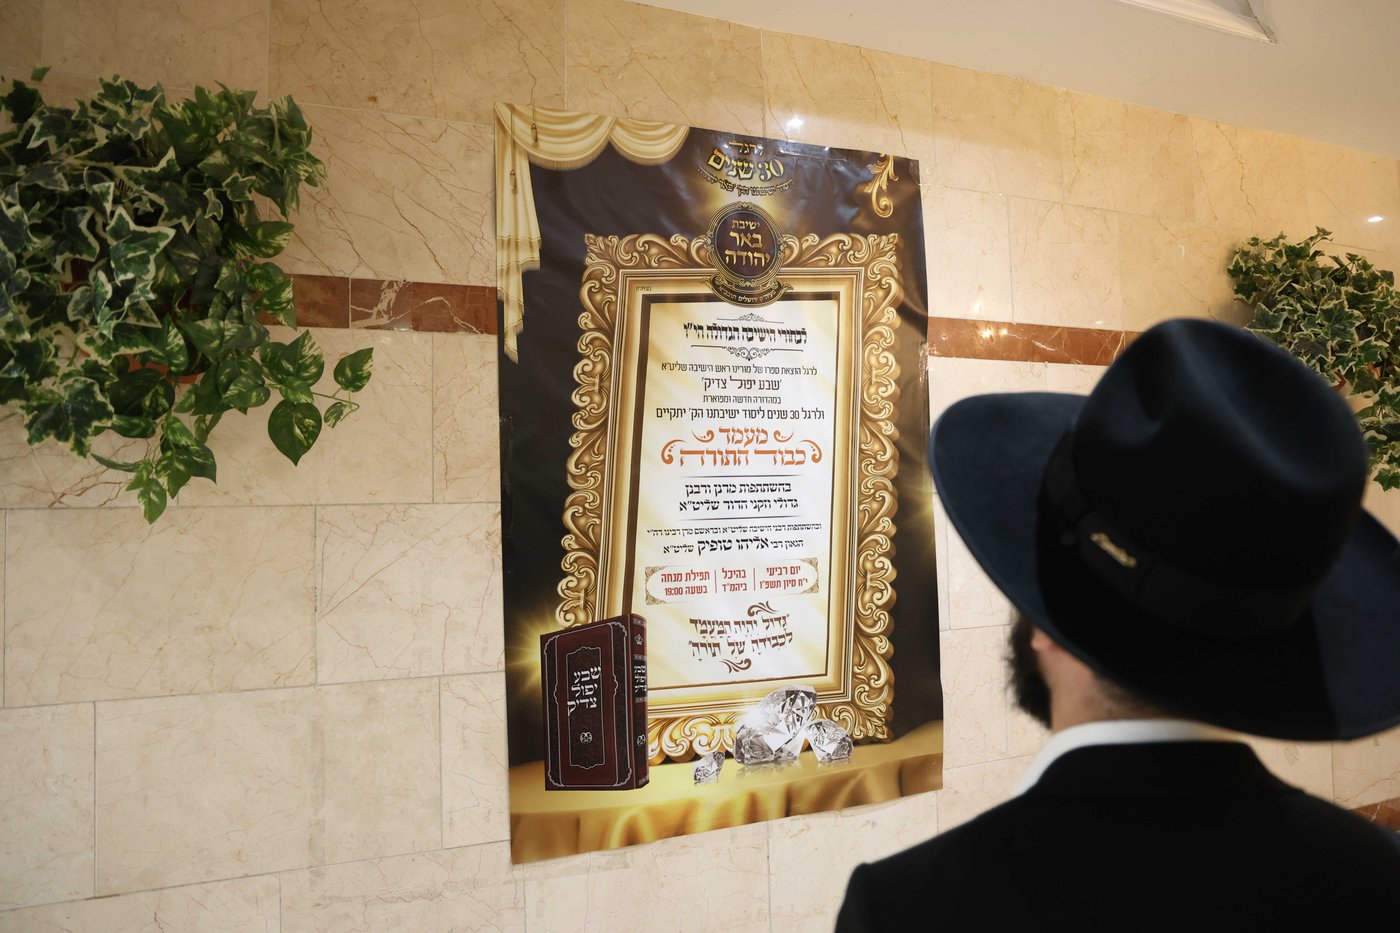 לרגל
30 שנים
ישיבת
באר
יהודה
בסיעתא דשמיא
לבחורי הישיבה הגדולה הי"ו
לרגל הוצאת ספרו של מורינו ראש הישיבה שליט"א
'שבע יפול צדיק'
במהדורה חדשה ומפוארת
ולרגל 30 שנים ליסוד ישיבתנו הק' יתקיים
מעמד
כבוד התורה
בהשתתפות מרנן ורבנן
גדולי וזקני הדור שליט"א
ובהשתתפות רבני הישיבה שליט"א ובראשם מרן רבינו רה"י
הגאון רבי אליהו טופיק שליט"א
יום רביעי
י"ח סיון תשפ"ו
בהיכל
ביהמ"ד
תפילת מנחה
בשעה 19:00
"גדול יהיה המעמד
לכבודה של תורה"
שבע
יפול
צדיק
שבע
יפול
צדיק